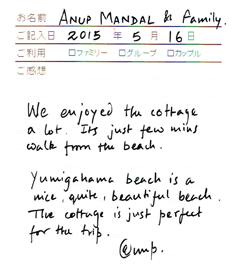 お名前 ANUP MANDAL & Family.
ご記入日 2015 年 5 月 16 日
ご利用 □ファミリー □グループ □カップル
ご感想
We enjoyed the cottage
a lot. Its just few mins
walk from the beach.
Yumigahama beach is a
nice, quite, beautiful beach.
The cottage is just perfect
for the trip.
@nup.